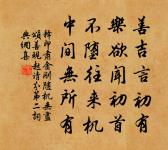 善吉言初有
樂欲聞初首
不墮往來机
中間無所有
釋印肅金剛隨机無盡
頌善現起請分第二詞
典網集